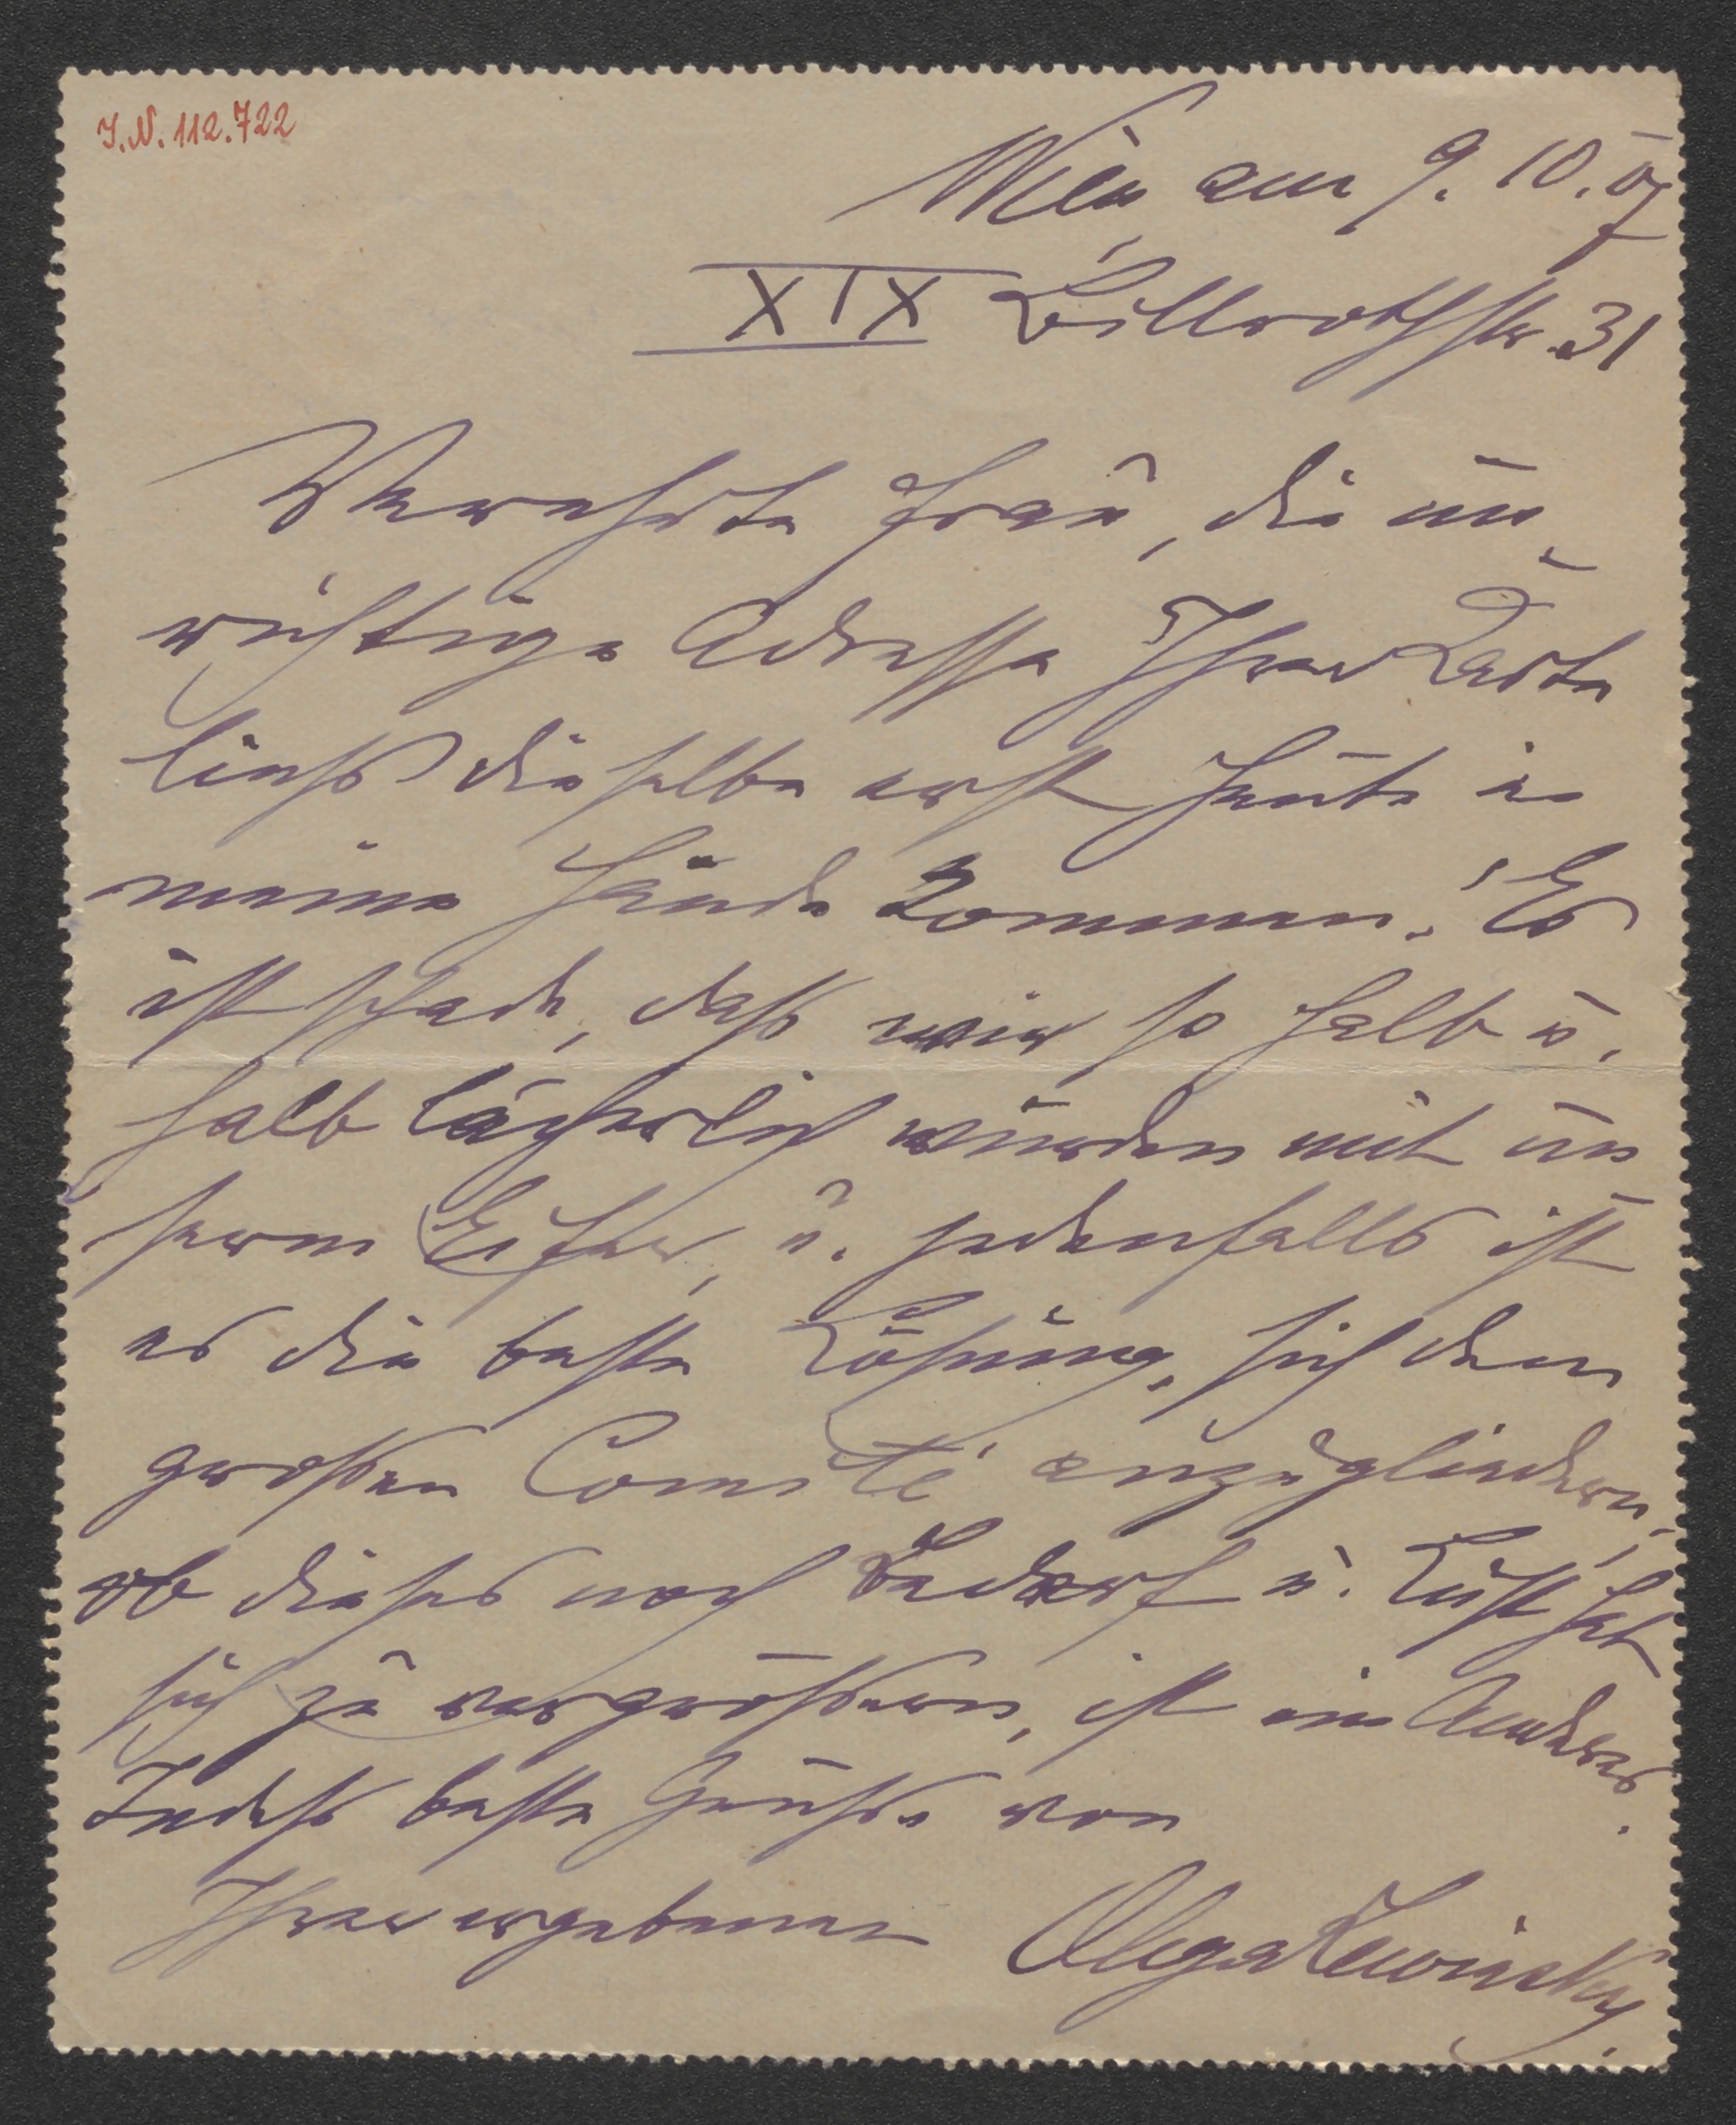 I.N. 112.722
Wien am 9. 10. 07
XIX Billrothstr. 31
Verehrte Frau, die un-
richtige Adresse Ihrer Karte
liess dieselbe erst heute in
meine Hände kommen. Es
ist schade, dass wir so halb u.
halb lächerlich würden mit un
serm Eifer, u. jedenfalls ist
es die beste Lösung, sich dem
grossen Comité anzugliedern,
ob dieses noch Bedarf u. Lust hat
sich zu vergrössern, ist ein Anderes.
Indess beste Grüsse von
Ihrer ergebenen Olga Lewinsky